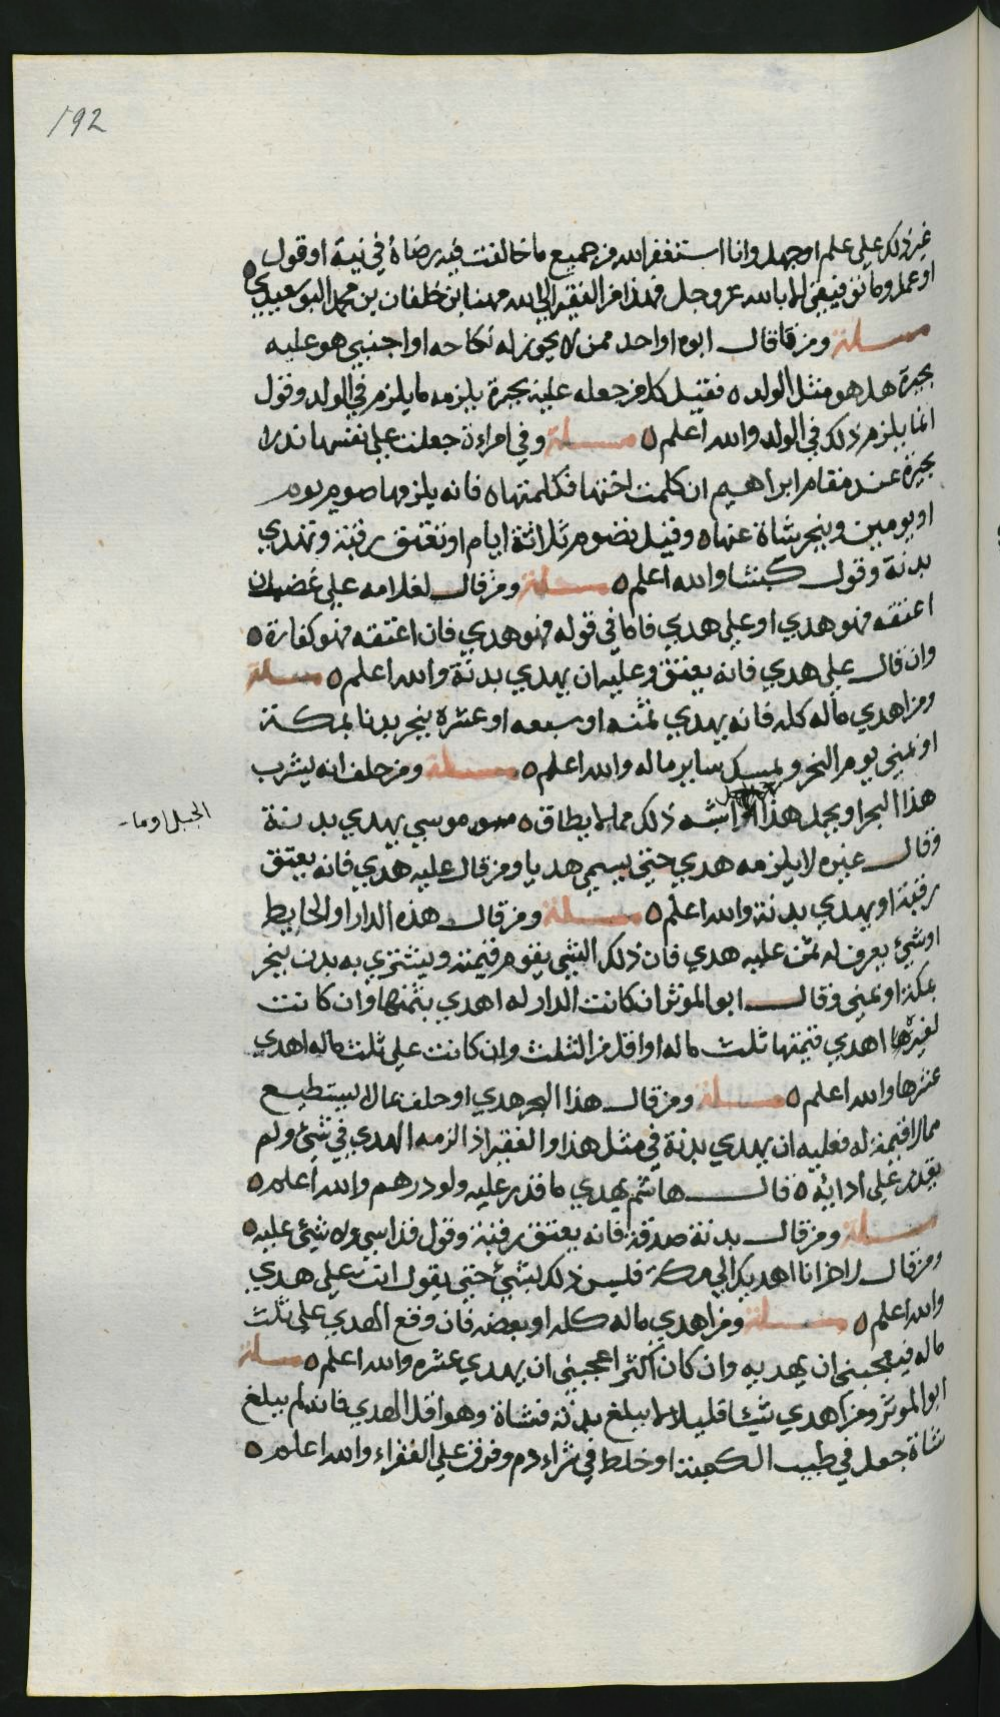 192
غير ذلك على علم او جهل وانا استغفر الله من جميع ما خالفت فيه رضاه في نية او قول
او عمل وما توفيقي الا بالله عز وجل فهذا من الفقير الى الله مهنا بن خلفان بن محمد البوسعيدي ه
مسئلة ومن قال ابوه او احد ممن لا يجوز له نكاحه او اجنبي هو عليه
بحيرة هل هو مثل الولد ه فقيل كل من جعله عليه بحيرة يلزمه ما يلزم في الولد وقول
انما يلزم ذلك في الولد والله اعلم ه مسئلة وفي امراءة جعلت على نفسها نذرا
بحيرة عند مقام ابراهيم ان كلمت اختها فكلمتها ه فانه يلزمها صوم يوم
او يومين وينحر شاة عنها ه وقيل تصوم ثلاثة ايام او تعتق رقبة وتهدي
بدنة وقول كبشا والله اعلم ه مسئلة ومن قال لغلامه على غضب ان
اعتقه فهو هدي او علي هدي فاما في قوله فهو هدي فان اعتقه فهو كفارة ه
وان قال علي هدي فانه يعتق وعليه ان يهدي بدنة والله اعلم ه مسئلة
ومن اهدي ماله كله فانه يهدي ثمنه او سبعه او عشره ينحر بدنا بمكة
او بمنى يوم النحر ويمسك ساير ماله والله اعلم ه مسئلة ومن حلف انه يشرب
هذا البحر او يحمل هذا او اشبه ذلك مما لا يطاق ه موسى يهدي بدنة
الجبل او ما
وقال غيره لا يلزمه هدي حتى يسمي هديا ومن قال عليه هدي فانه يعتق
رقبة او يهدي بدنة والله اعلم ه مسئلة ومن قال هذه الدار او الحايط
او شيئ يعرف له ثمن عليه هدي فان ذلك الشي يقوم قيمته ويشتري به بدن ينحر
بمكة او بمنى وقال ابو الموثر ان كانت الدار له اهدي بثمنها وان كانت
لغيره اهدي قيمتها ثلث ماله او اقل من الثلث وان كانت على ثلث ماله اهدي
عشرها والله اعلم ه مسئلة ومن قال هذا البحر هدي او حلف بما لا يستطيع
مما لا قيمة له فعليه ان يهدي بدنة في مثل هذا والفقير اذا لزمه الهدي في شيئ ولم
يقدر على ادايه ه قال هاشم يهدي ما قدر عليه ولو درهم والله اعلم ه
مسئلة ومن قال بدنة صدقة فانه يعتق رقبة وقول قد اسي ولا شيئ عليه ه
ومن قال لاخر انا اهديك الى مكة فليس ذلك بشيئ حتى يقول انت علي هدي
والله اعلم ه مسئلة ومن اهدي ماله كله او بعضه فان وقع الهدي على ثلث
ماله فيعجبني ان يهديه وان كان اكثر اعجبني ان يهدي عشره والله اعلم ه مسئلة
ابو الموثر ومن اهدي شيئا قليلا لا يبلغ بدنة فشاة وهو اقل الهدي فان لم يبلغ
شاة جعل في طيب الكعبة او خلط في شراء دم وفرق على الفقراء والله اعلم ه